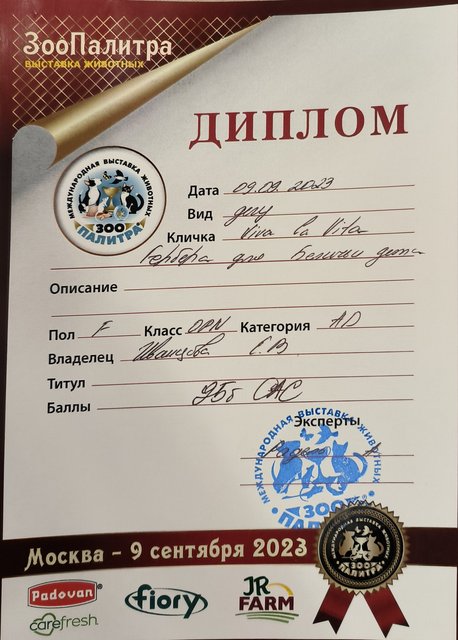 ЗооПалитра
ВЫСТАВКА ЖИВОТНЫХ
ДИПЛОМ
МЕЖДУНАРОДНАЯ ВЫСТАВКА ЖИВОТНЫХ
ЗОО
ПАЛИТРА
Дата 09.09.2023
Вид дегу
Кличка Viva la Vita
Гербера для
Описание
Пол F Класс OPN Категория AD
Владелец С.В.
Титул
Баллы 95б CAC
Эксперты
МЕЖДУНАРОДНАЯ ВЫСТАВКА ЖИВОТНЫХ
ЗОО
ПАЛИТРА
Москва – 9 сентября 2023
МЕЖДУНАРОДНАЯ ВЫСТАВКА ЖИВОТНЫХ
ЗОО
ПАЛИТРА
Padovan
carefresh
fiory
JR
FARM